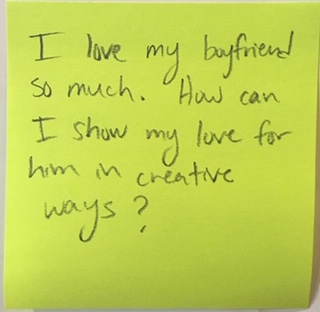 I love my boyfriend
so much. How can
I show my love for
him in creative
ways?